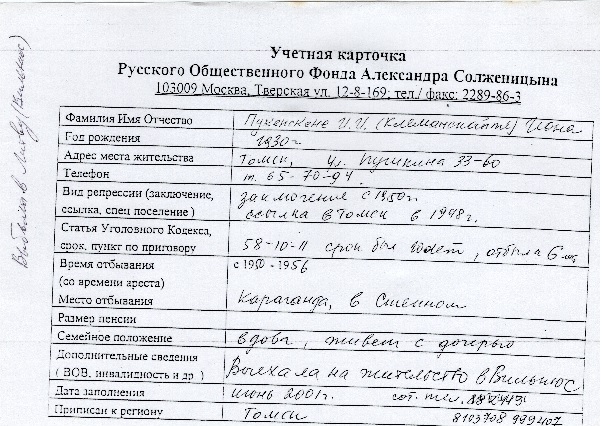 Учетная карточка
Русского Общественного Фонда Александра Солженицына
103009 Москва, Тверская ул. 12-8-169; тел./ факс: 2289-86-3
Фамилия Имя Отчество
Год рождения 1930г
Адрес места жительства Томск, ул. Пушкина 33-60
Телефон т. 65-70-94
Вид репрессии (заключение, заключение с 1950г.
ссылка, спец поселение) ссылка в Томск в 1948г.
Статья Уголовного Кодекса,
срок, пункт по приговору 58-10-11 срок был 10 лет, отбыла 6
Время отбывания с 1950-1956
(со времени ареста)
Место отбывания Караганда, в Степном
Размер пенсии
Семейное положение вдова, живет с дочерью
Дополнительные сведения
( ВОВ, инвалидность и др ) Выехала на жительство в Вильнюс
Дата заполнения июнь 2001г. сот. тел.
Приписан к региону Томск
Выбыла в Литву (Вильнюс)